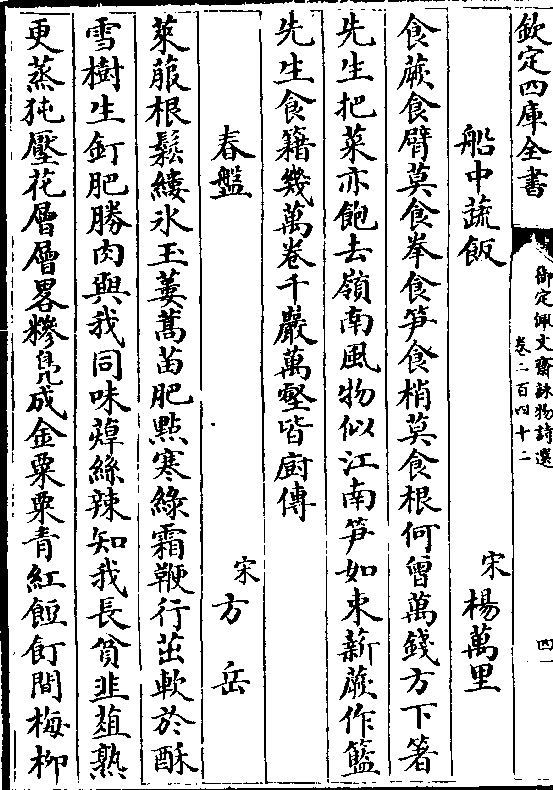 欽定四庫全書
御定佩文齋詠物詩選
卷二百四十二
四
船中蔬飯
宋 楊萬里
食蕨食臂莫食拳食笋食梢莫食根何曾萬錢方下箸
先生把菜亦飽去嶺南風物似江南笋如束薪蕨作籃
先生食籍幾萬卷千巖萬壑皆廚傳
春盤
宋 方岳
萊菔根鬆縷冰玉蔞蒿苗肥點寒綠霜鞭行茁軟於酥
雪樹生釘肥勝肉與我同味蓴絲辣知我長貧韭葅熟
更蒸㹠壓花層層畧糝鳧成金粟粟青紅飣餖間梅柳